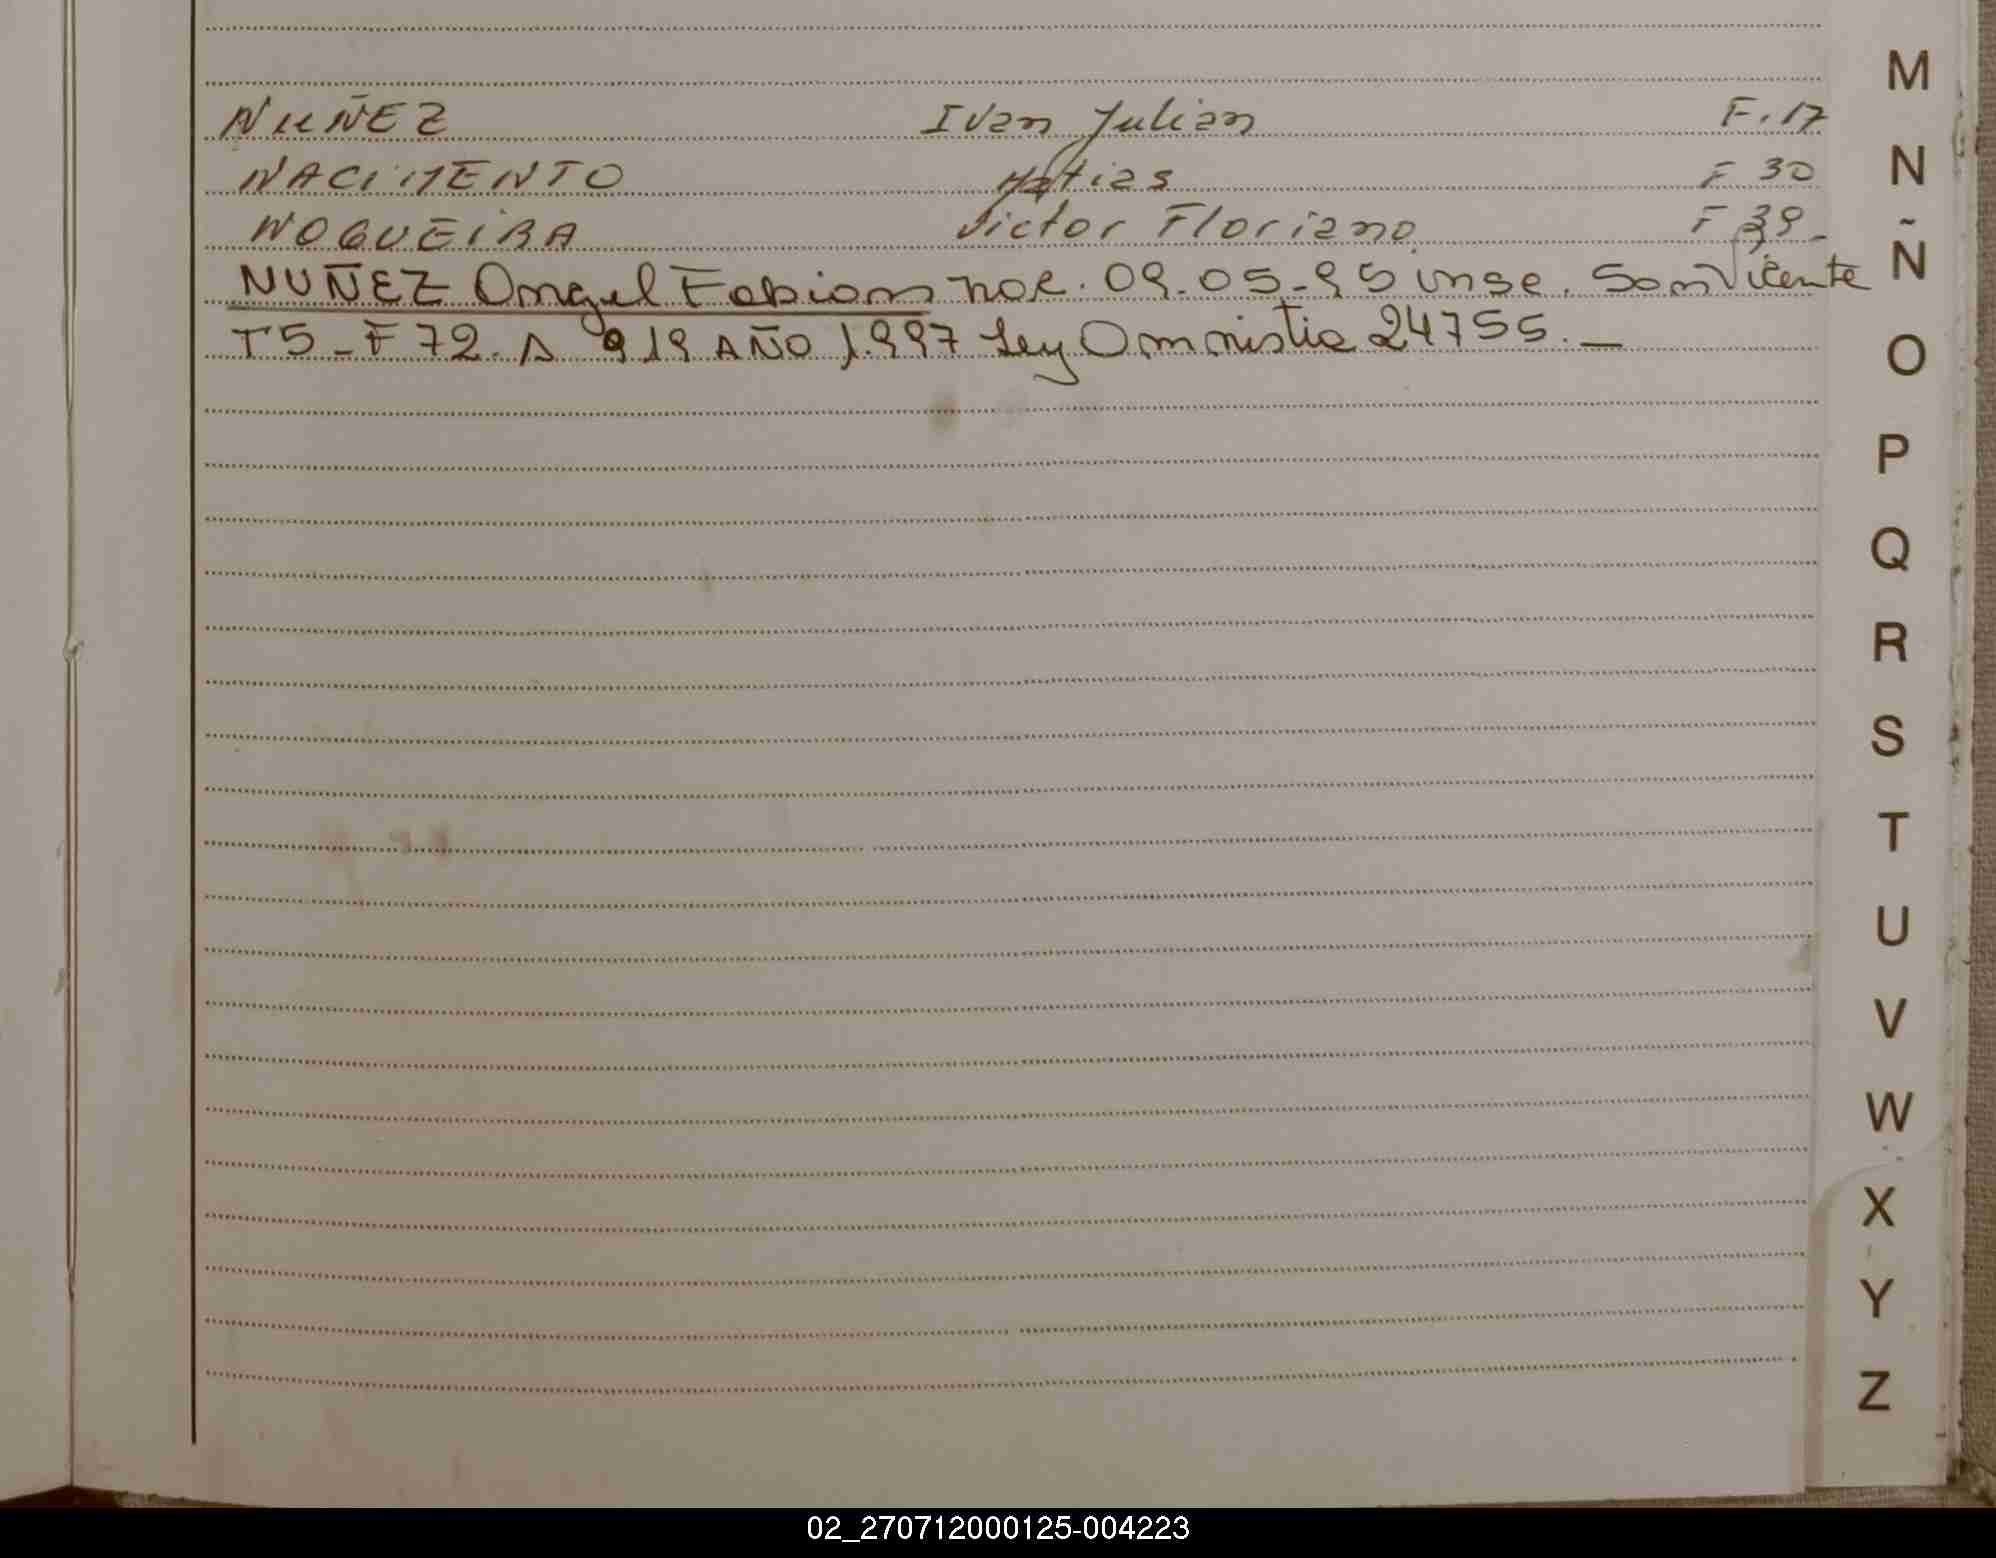 NUÑEZ Ivan Julian F.17
NACIMENTO Matias F 30
NOGUEIRA Victor Floriano F 39-
NUÑEZ Angel Fabian nac. 09-05-95 insc. San Vicente
T5-F72. A 919 AÑO 1.997 Ley Amnistia 24755.-
M
N
Ñ
O
P
Q
R
S
T
U
V
W
X
Y
Z
02_270712000125-004223